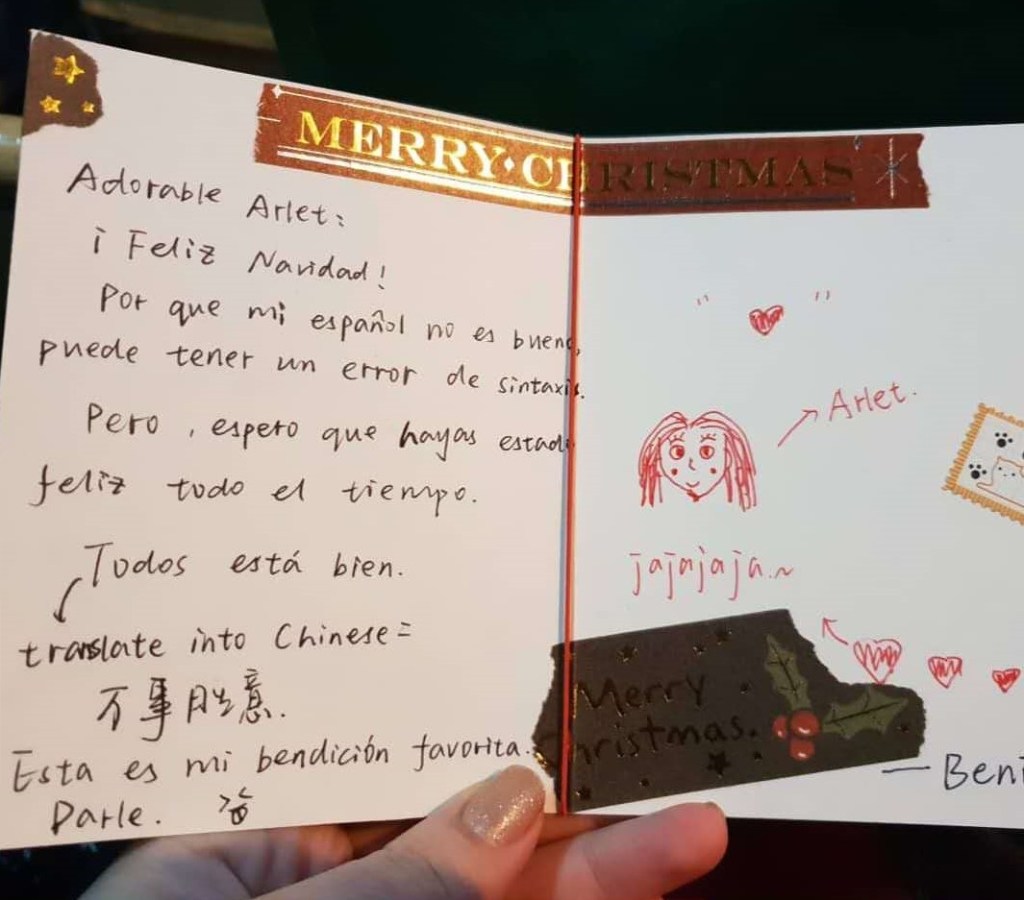 MERRY·CHRISTMAS
Adorable Arlet:
¡Feliz Navidad!
Por que mi español no es bueno,
puede tener un error de sintaxis.
Pero, espero que hayas estado
feliz todo el tiempo.
Todos está bien.
translate into Chinese=
万事胜意.
Esta es mi bendición favorita.
Darle.
Arlet.
jajajaja.~
Merry
Christmas.
— Beni